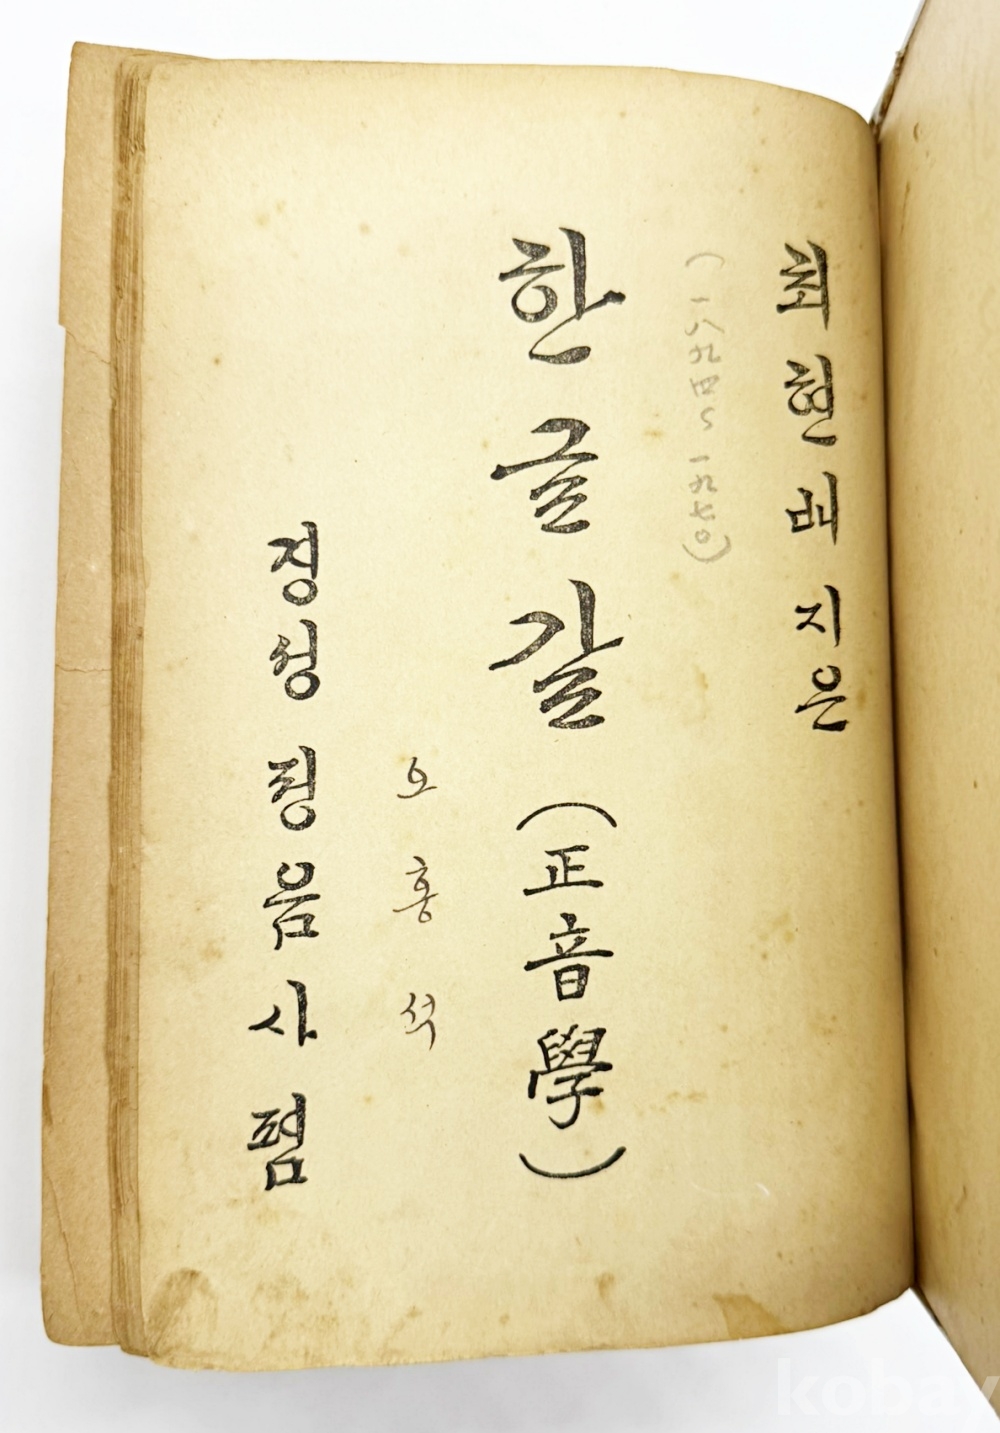 최현배 지은
(一八九四~一九七〇)
한글갈 (正音學)
오홍석
경성 정음사 폄
kobay